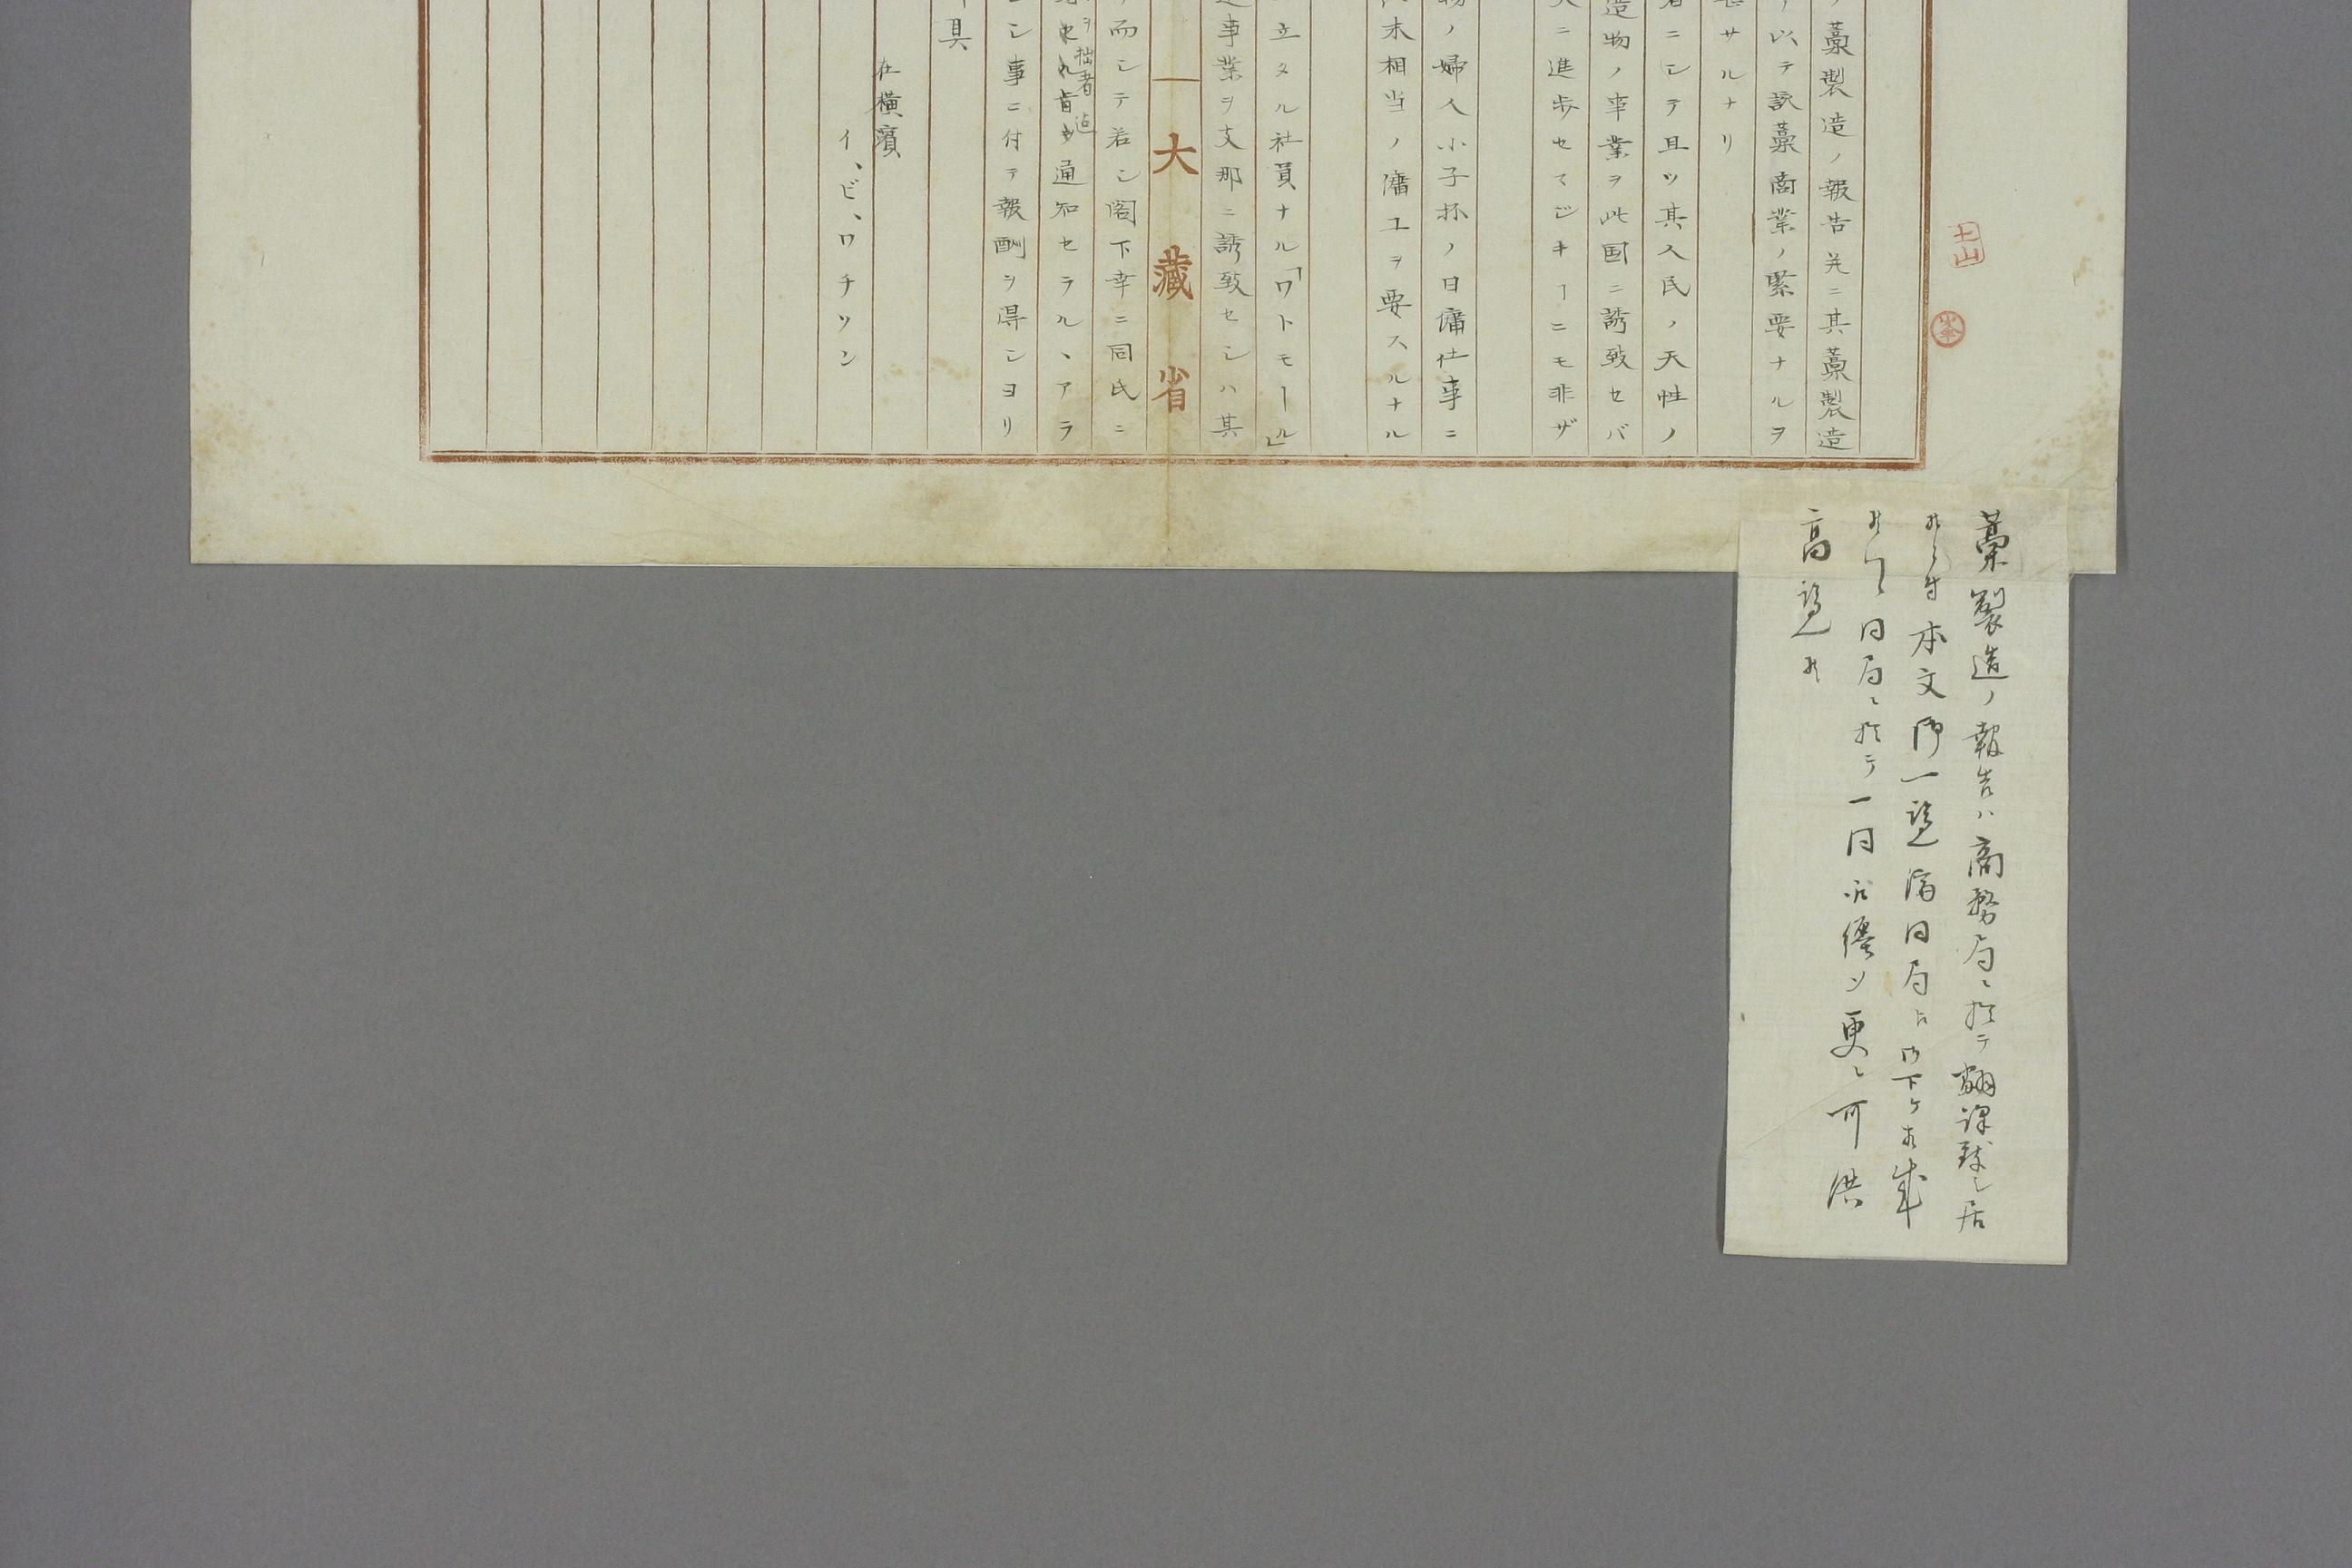 ノ藁製造ノ報告并ニ其藁製造
以テ該藁商業ノ緊要ナルヲ
サルナリ
者ニシテ且ツ其人民ノ天性ノ
造物ノ事業ヲ此国ニ誘致セバ
ニ進歩セマジキーニモ非ザ
物ノ婦人小子抔ノ日傭仕事ニ
末相当ノ傭工ヲ要スルナル
立タル社員ナル「ワトモール」
事業ヲ支那ニ誘致セシハ其
大藏省
而シテ若シ閣下幸ニ同氏ニ
ヲ拙者迄
通知セラルヽアラ
シ事ニ付テ報酬ヲ得ンヨリ
具
在横濱
イ、ビ、ワチソン
土山
峯
藁製造ノ報告ハ商務局ニ於テ翻譯致シ居
候ニ付本文御一覧済同局ヘ御下ケ相成
候ハヽ同局ニ於テ一同取纏メ更ニ可供
高覧候